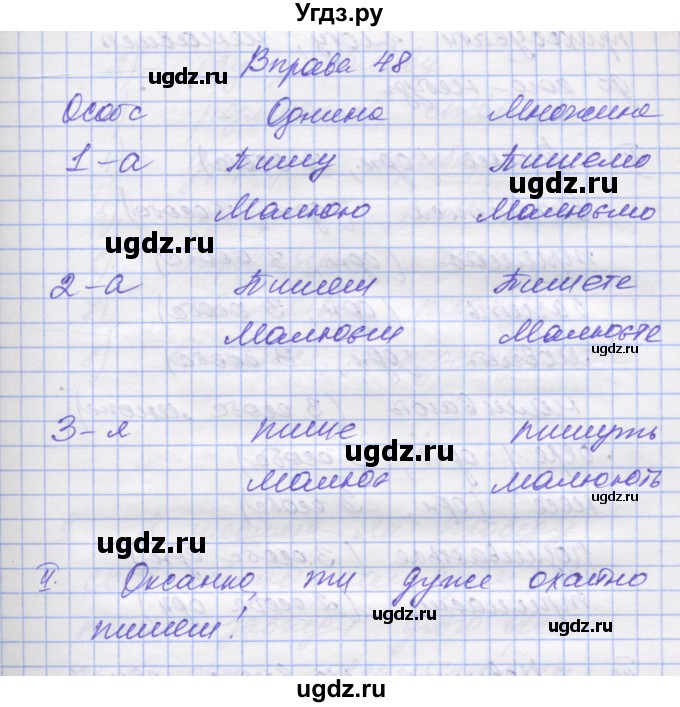 Угдз.ру
Вправа 48
ugdz.ru
Особа Однина Множина
ugdz.ru
1-а Пишу Пишемо
ugdz.ru
Малюю Малюємо
ugdz.ru
2-а Пишеш Пишете
ugdz.ru
Малюєш Малюєте
ugdz.ru
3-я пише пишуть
ugdz.ru
Малює малюють
ugdz.ru
ugdz.ru
II. Оксанко, ти дуже охайно
ugdz.ru
пишеш!
ugdz.ru
ugdz.ru